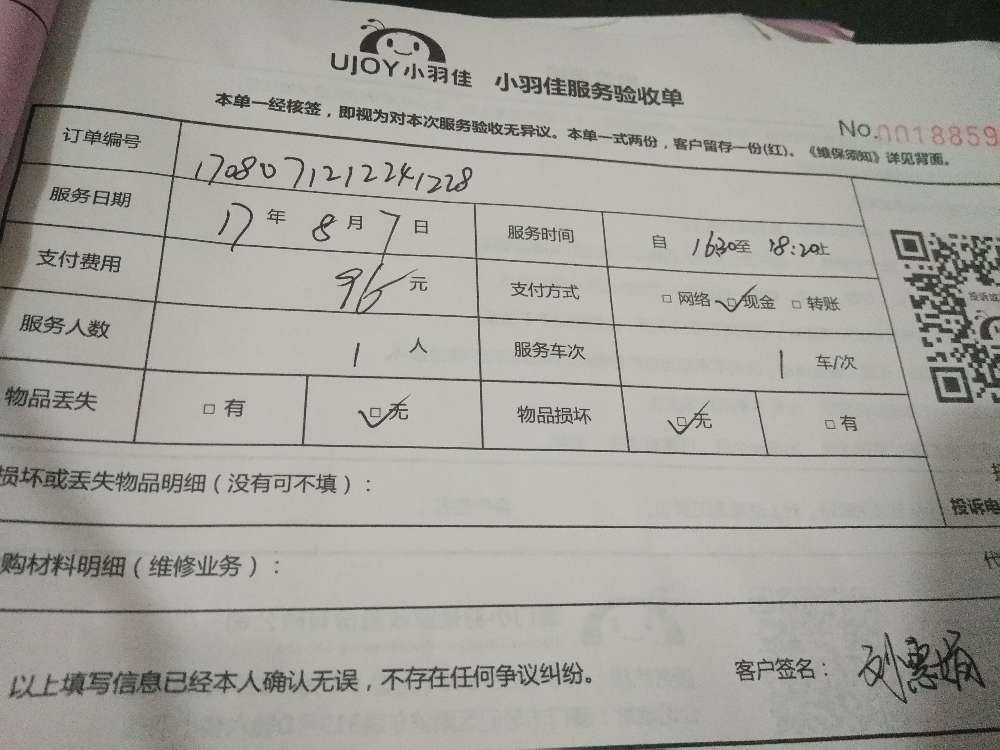 UJOY小羽佳 小羽佳服务验收单
本单一经核签，即视为对本次服务验收无异议。本单一式两份，客户留存一份(红)。《维保须知》详见背面。
No.0018859
订单编号 1708071212241228
服务日期 17年 8月 7日 服务时间 自 16:30至 18:20止
支付费用 元 支付方式 □ 网络 □ 现金 □ 转账
服务人数 1 人 服务车次 1 车/次
物品丢失 □ 有 □ 无 物品损坏 □ 无 □ 有
损坏或丢失物品明细（没有可不填）：
投诉电
购材料明细（维修业务）：
代
以上填写信息已经本人确认无误，不存在任何争议纠纷。 客户签名：